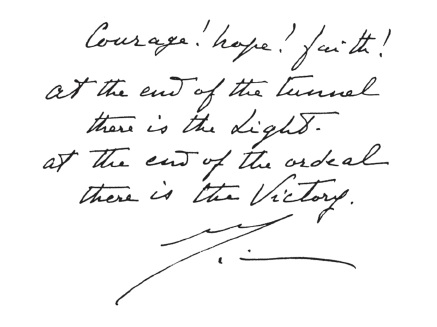 Courage! hope! faith!
at the end of the tunnel
there is the Light.
at the end of the ordeal
there is the Victory.